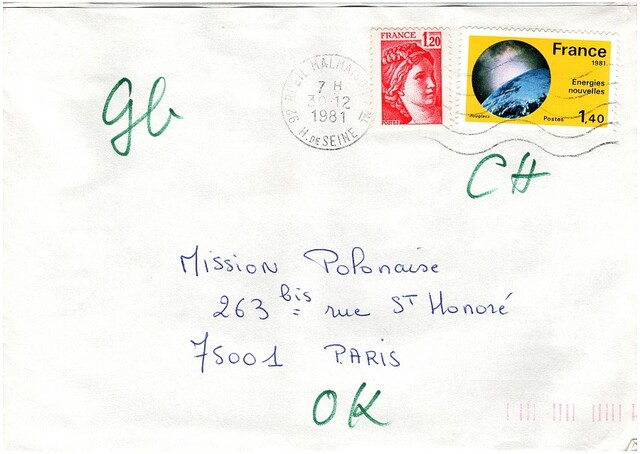 FRANCE 1,20
France
1981
Energies
nouvelles
Postes 1,40
92 RUEIL MALMAISON
7 H
30-12
1981
H. DE SEINE
Gb
CH
Mission Polonaise
263 bis rue ST Honoré
75001 PARIS
OK